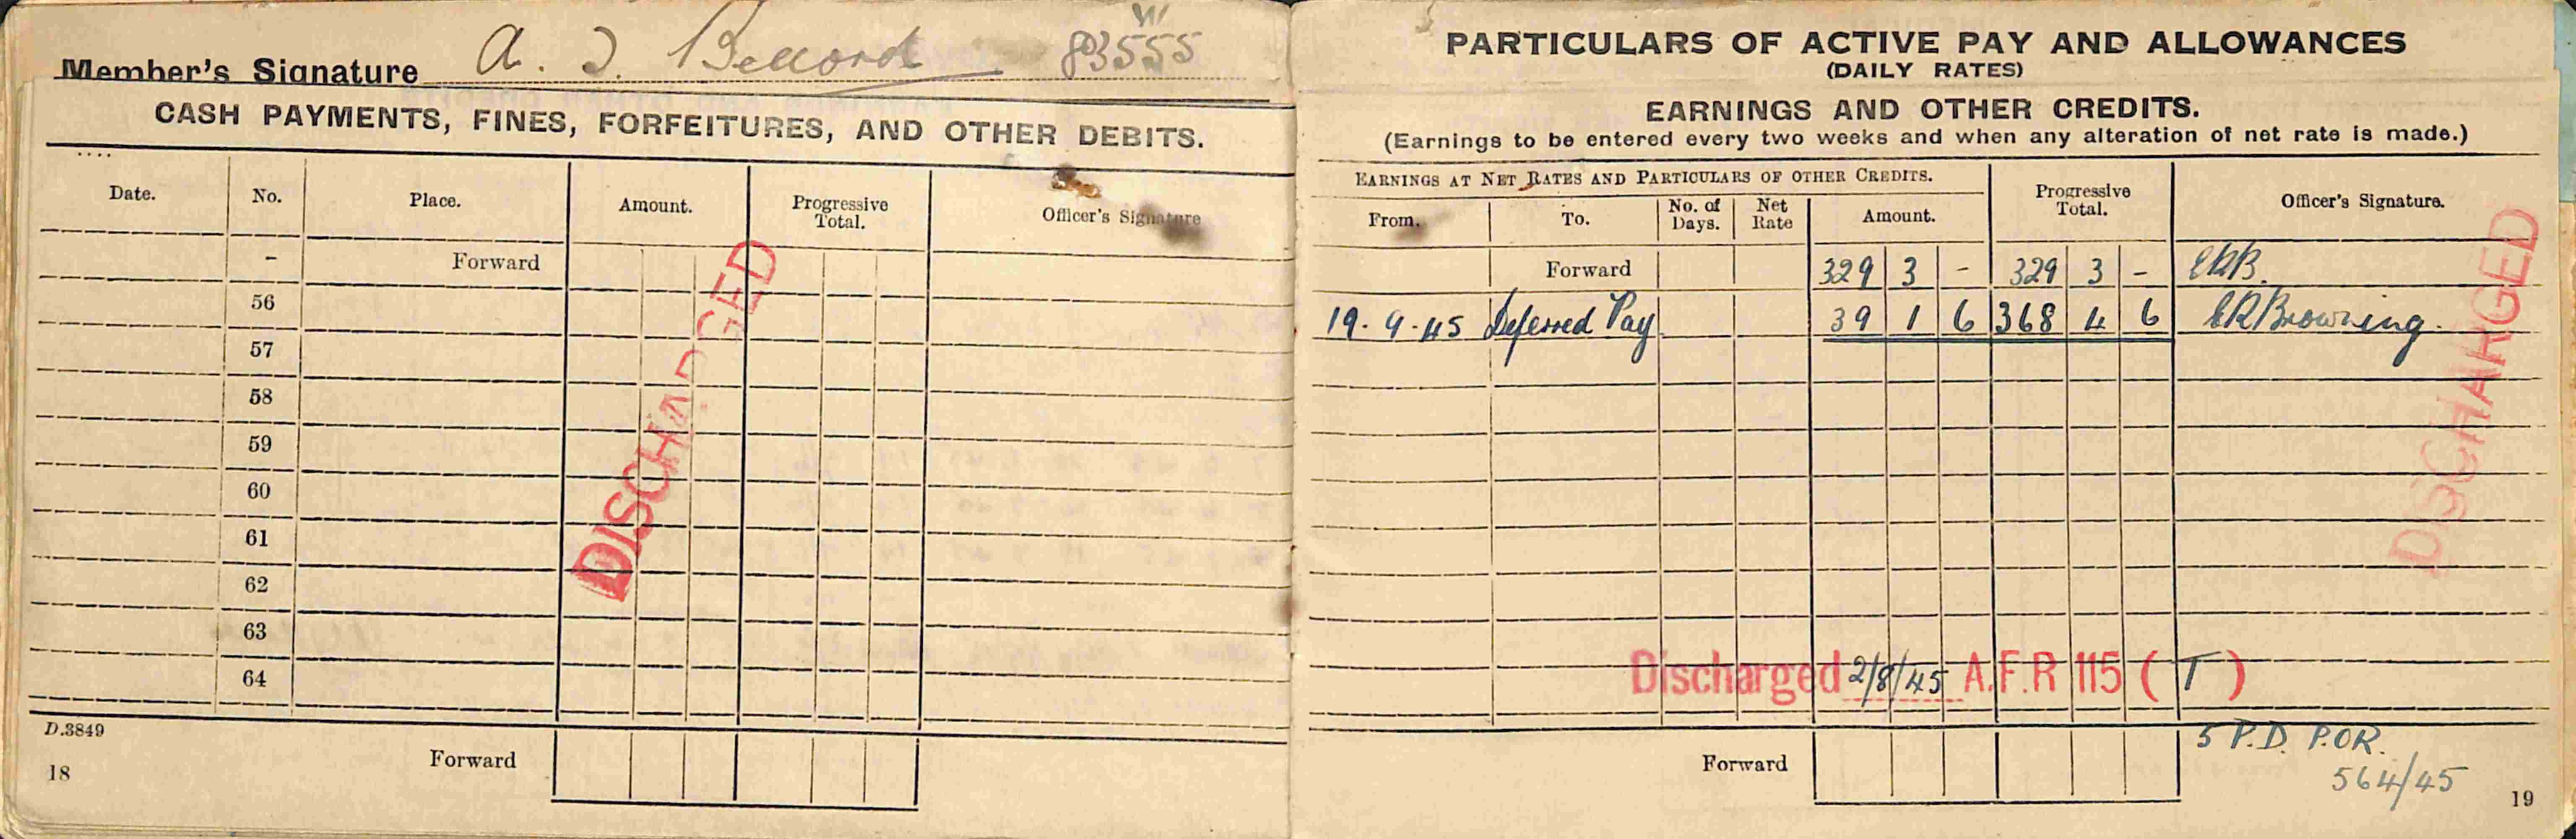 Member's Signature A. J. Bellord W 83555
CASH PAYMENTS, FINES, FORFEITURES, AND OTHER DEBITS.
Date. No. Place. Amount. Progressive Total. Officer's Signature
- Forward
56
57
58
59
60
61
62
63
64
DISCHARGED
D.3849
Forward
18
PARTICULARS OF ACTIVE PAY AND ALLOWANCES
(DAILY RATES)
EARNINGS AND OTHER CREDITS.
(Earnings to be entered every two weeks and when any alteration of net rate is made.)
EARNINGS AT NET RATES AND PARTICULARS OF OTHER CREDITS. Progressive Total. Officer's Signature.
From. To. No. of Days. Net Rate Amount.
Forward 329 3 - 329 3 - ERB.
19.9.45 Deferred Pay 39 1 6 368 4 6 ERBrowning.
DISCHARGED
Discharged 2/8/45 A.F.R 115 ( T )
5 P.D. P.OR.
564/45
Forward
19